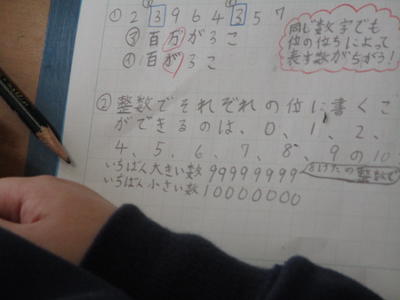 ① 2 3 9 6 4 3 5 7
百万が3こ
百が3こ
同じ数字でも
位の位ちによって
表す数がちがう!
② 整数でそれぞれの位に書くこ
ができるのは、0、1、2、
4、5、6、7、8、9の10
いちばん大きい数 99999999
いちばん小さい数 10000000
8けたの整数で